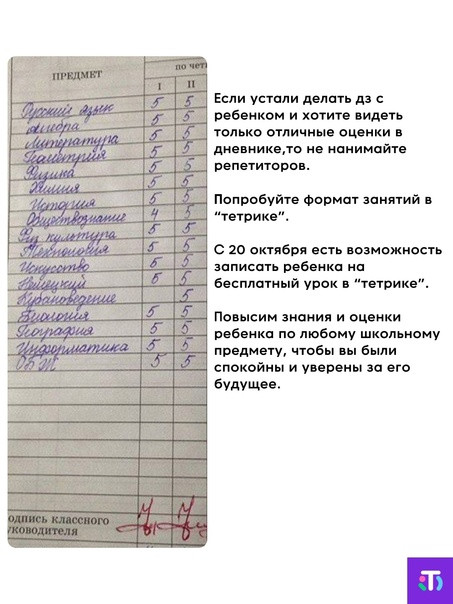 ПРЕДМЕТ
по чет
I II
Русский язык 5 5
Алгебра 5 5
Литература 5 5
Геометрия 5 5
Физика 5 5
Химия 5 5
История 5 5
Обществознание 4 5
Физ культура 5 5
Технология 5 5
Искусство 5 5
Немецкий 5 5
Кубановедение 5
Биология 5 5
География 5 5
Информатика 5 5
ОБЖ 5 5
одпись классного
уководителя
Если устали делать дз с
ребенком и хотите видеть
только отличные оценки в
дневнике,то не нанимайте
репетиторов.
Попробуйте формат занятий в
“тетрике”.
С 20 октября есть возможность
записать ребенка на
бесплатный урок в “тетрике”.
Повысим знания и оценки
ребенка по любому школьному
предмету, чтобы вы были
спокойны и уверены за его
будущее.